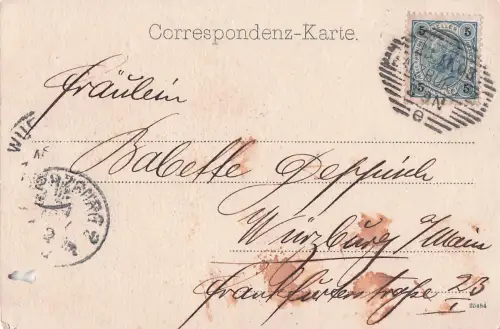 Correspondenz-Karte.
5 5
5 5
Fräulein
Babette Deppisch
Würzburg a/Main
Frankfurterstraße 23
I